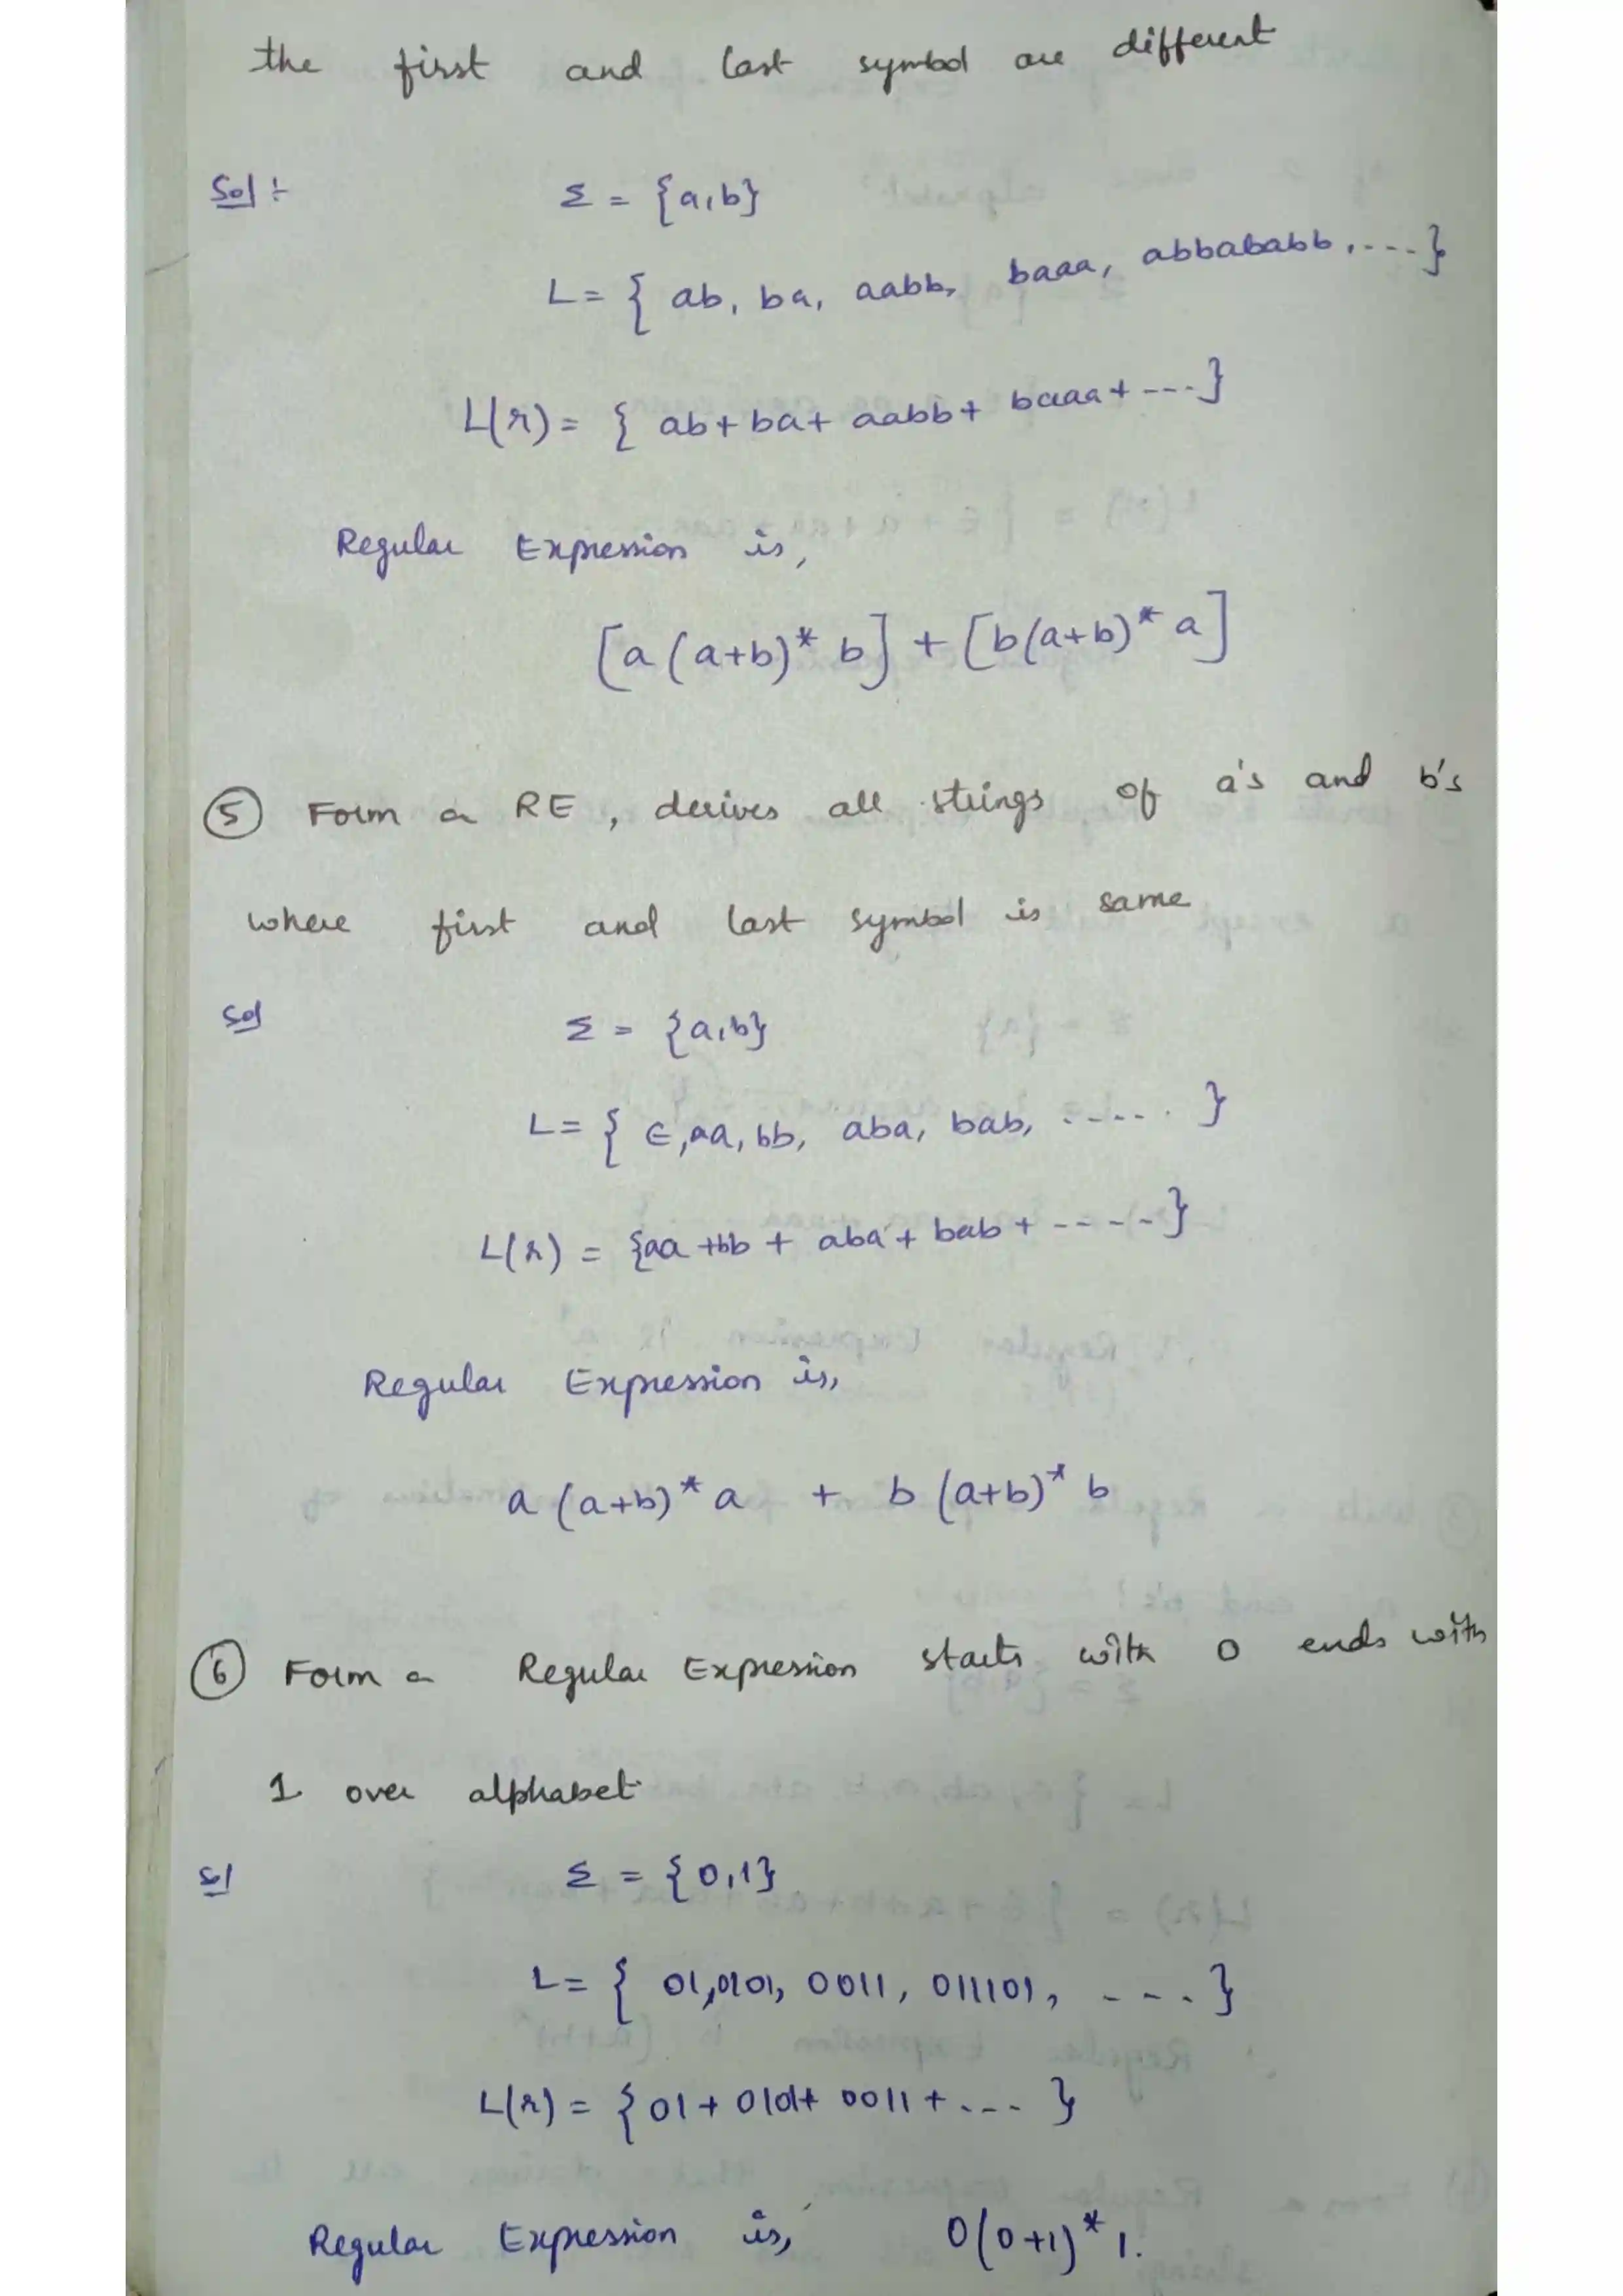 the first and last symbol are different
Sol :-
Σ = {a,b}
L = { ab, ba, aabb, baaa, abbababb, ....}
L(r) = { ab + ba + aabb + baaa + ---}
Regular Expression is,
[a (a+b)* b] + [b(a+b)* a]
⑤ Form a RE, derives all strings of a's and b's
where first and last symbol is same
Sol
Σ = {a,b}
L = { ∈, aa, bb, aba, bab, ...... }
L(r) = {aa + bb + aba + bab + ----}
Regular Expression is,
a (a+b)* a + b (a+b)* b
⑥ Form a Regular Expression starts with 0 ends with
1 over alphabet
Sol
Σ = {0,1}
L = { 01, 0101, 0011, 011101, --- }
L(r) = {01 + 0101 + 0011 + --- }
Regular Expression is, 0(0+1)* 1.